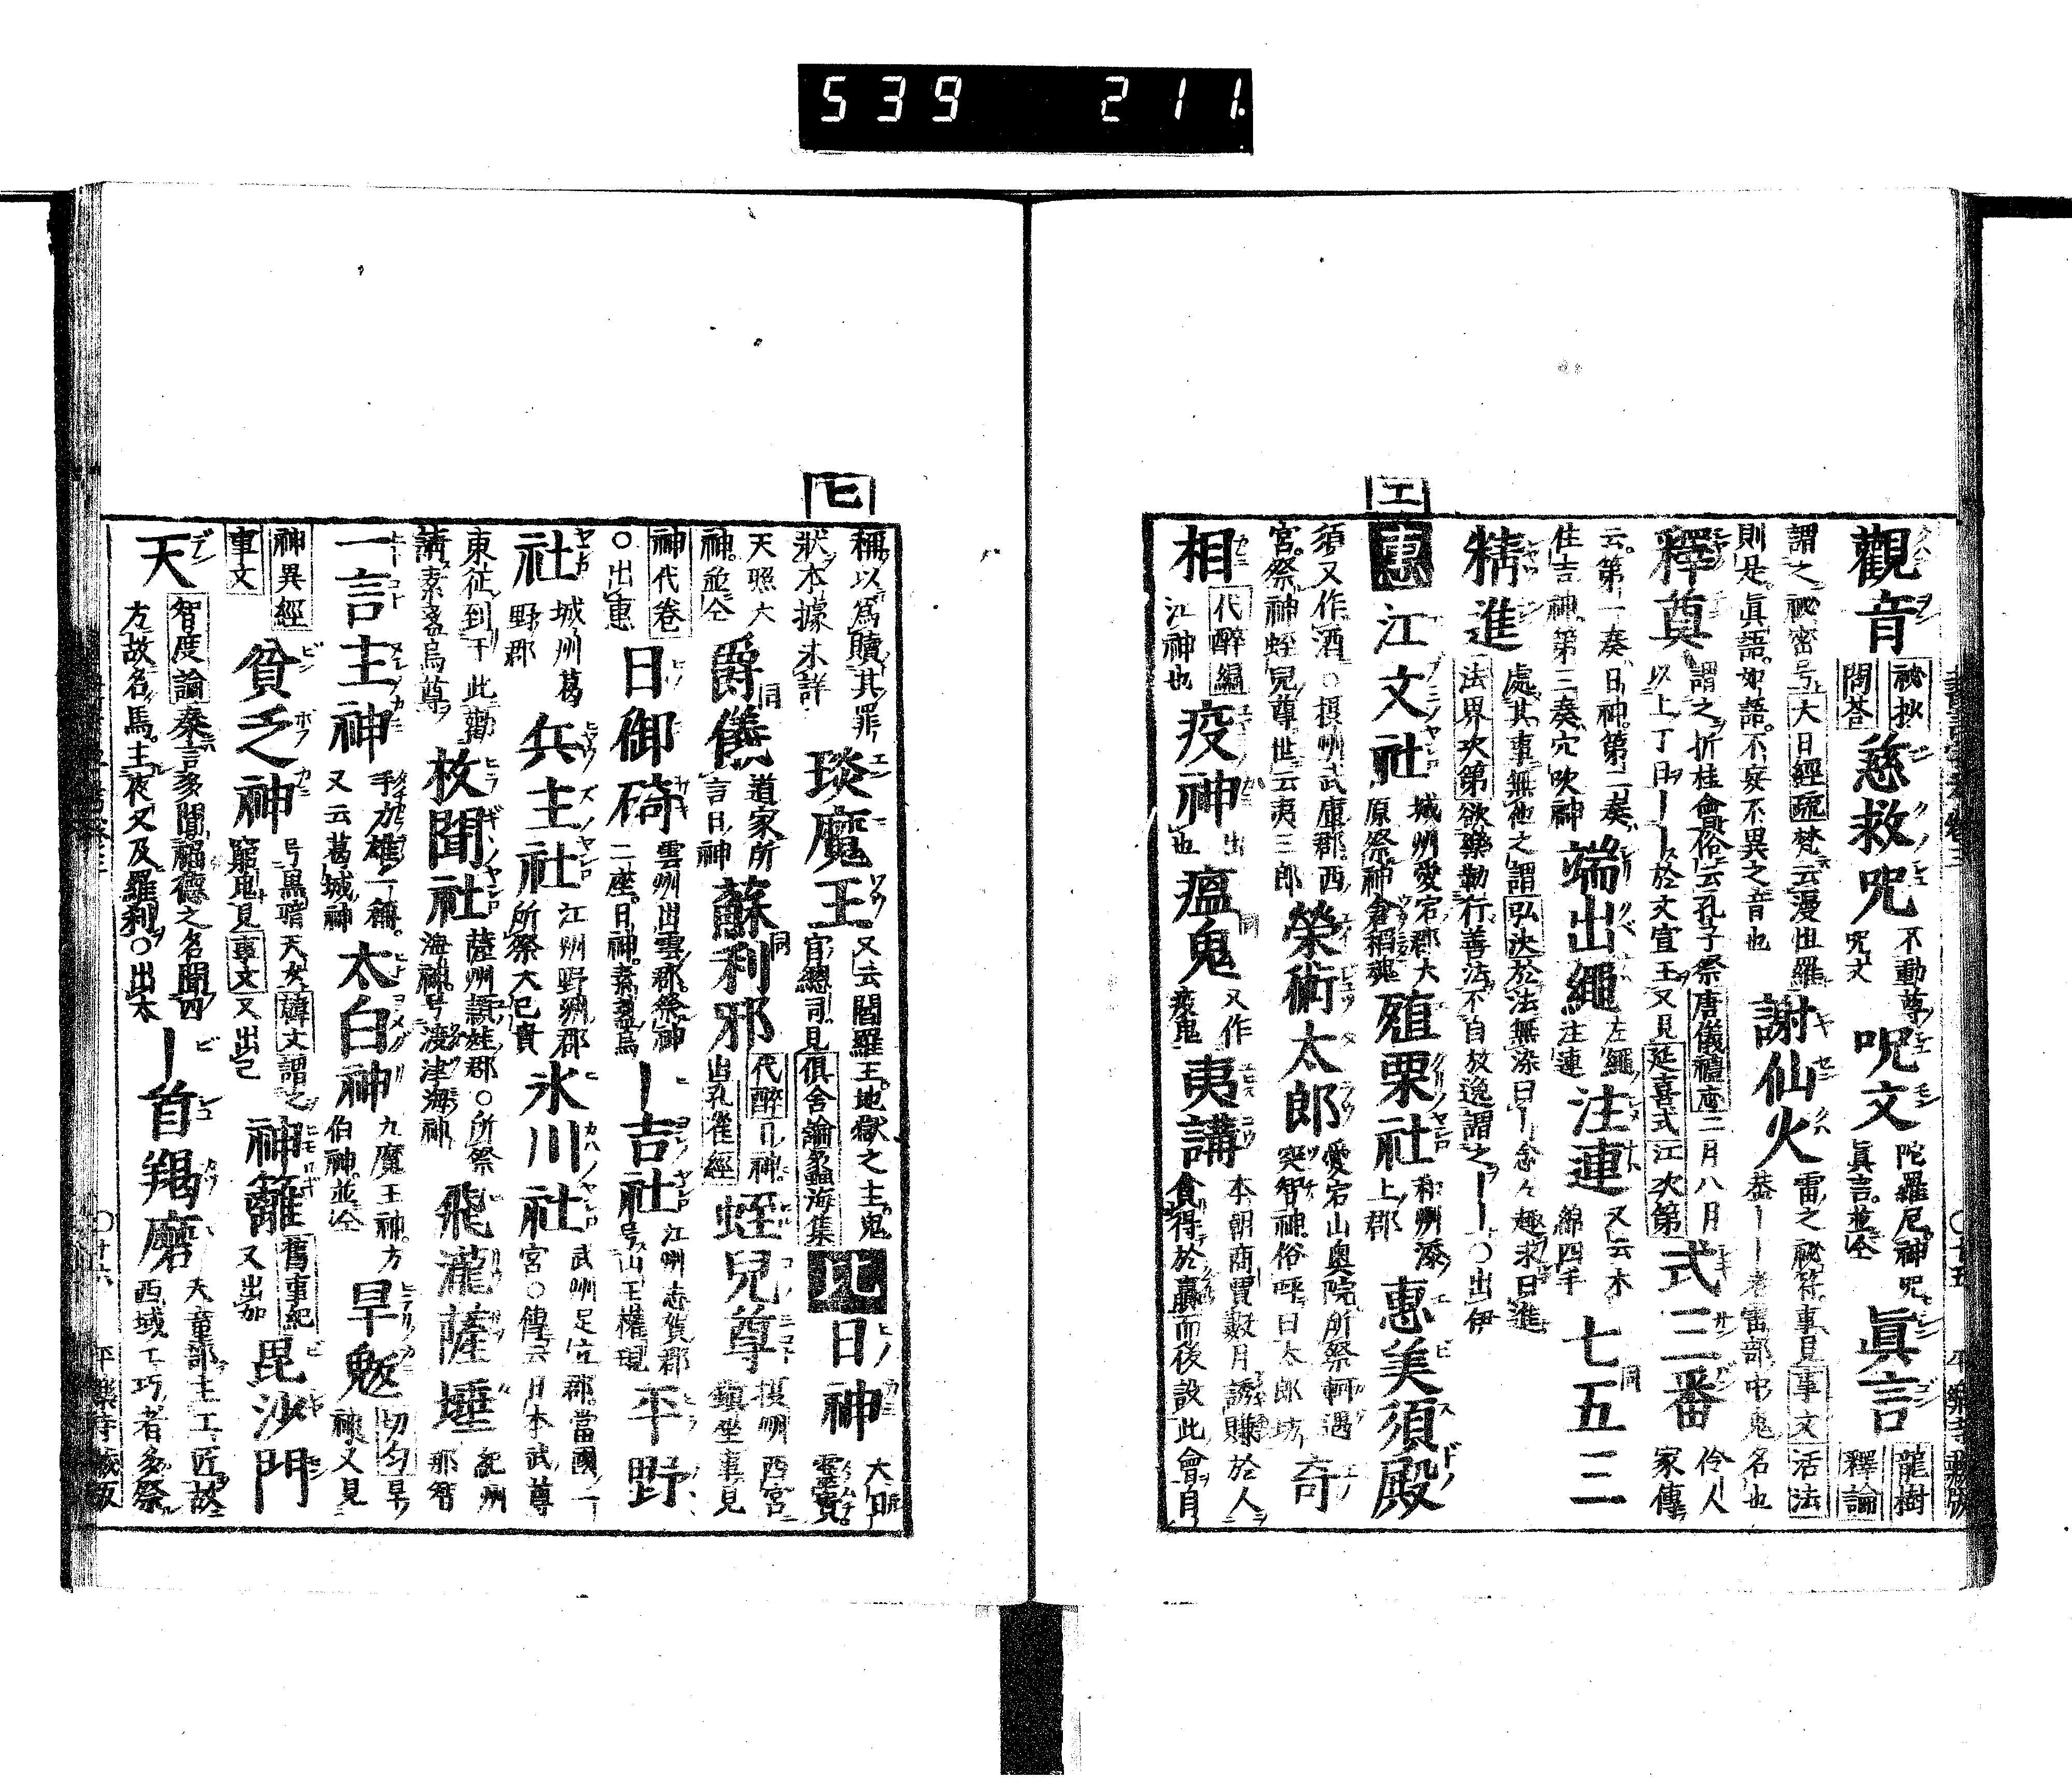 539 211
エ
觀音 秘抄 問荅 慈救呪 不動尊 呪文 呪文 陀羅尼神呪 眞言並仝 眞言 龍樹 釋論
謂之秘密号 大日經䟽 梵云漫怛羅
則是眞語如語不妄不異之音也 謝仙火 雷之秘符事見 事文 活法 葢ーー者雷部中鬼名也
釋奠 謂之折桂會俗云孔子祭 唐儀禮 二月八月 以上丁日ーー於文宣王又見 延喜式 江次第 式三番 伶人 家傳
云第一奏日神第二奏 住吉神第三奏穴吹神 端出繩 左繩 注連 注連 又云木 綿四手 七五三 同
精進 處其事無他之謂 弘决 於法無染曰ー念々趣求曰進 法界次第 欲樂勤行善法不自放逸謂之ーー○出伊
惠 江文社 城州愛宕郡大 原祭神倉稻魂 殖栗社 和州添 上郡 惠美須殿
須又作酒○摂州武庫郡西 宮祭神蛭兒尊世云夷三郎 榮術太郎 愛宕山奥院所祭軻遇 突智神俗呼曰太郎坊 奇
相 代醉編 江神也 疫神 出 也 瘟鬼 同 又作 疫鬼 夷講 本朝商賈數月誘賺於人 貪得於贏而後設此會自
○十五
ヒ
稱以爲贖其罪 狀本據未詳 琰魔王 又云閻羅王地獄之主鬼 官總司見 倶舍論 蠡海集 比 日神 大日 靈貴
天照大 神並仝 爵儀 同 道家所 言日神 蘇利邪 同 代醉 日神 出 孔雀經 蛭兒尊 摂州西宮 鎮坐事見
神代卷 ○出惠 日御碕 雲州出雲郡祭神 二座日神素盞烏 ー吉社 江州志賀郡 号山王權現 平野
社 城州葛 野郡 兵主社 江州野洲郡 所祭大己貴 氷川社 武州足立郡當國一 宮○傳云日本武尊
東征到于此勸 請素盞烏尊 枚聞社 薩州頴娃郡○所祭 海神号渡津海神 飛瀧薩埵 紀州 那智
一言主神 手力雄一稱 又云葛城神 太白神 九魔王神方 伯神並仝 早魃 切匀 旱 又見
神異經 事文 貧乏神 号黒暗天女 韓文 謂之 窮鬼見 事文 又出己 神籬 舊事紀 又出加 毘沙門
天 智度論 秦言多聞福德之名聞四 方故名焉主夜叉及羅刹○出太 ー首羯磨 天童部主工匠故 西域工巧者多祭
○十六 平樂寺藏板